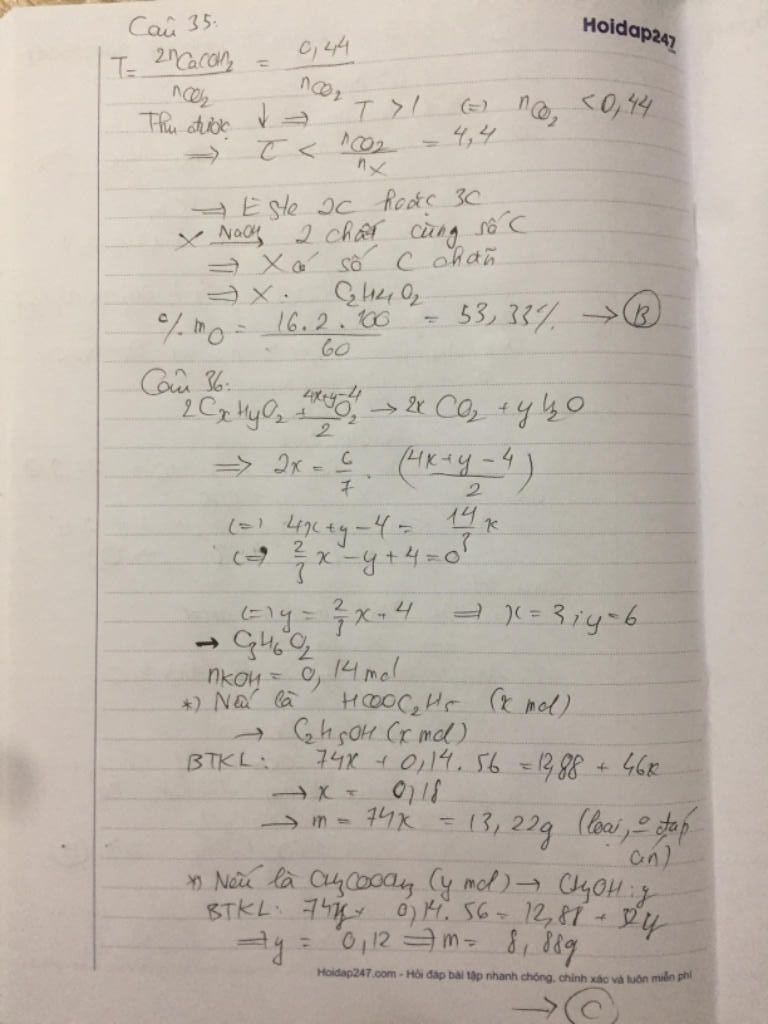 Câu 35:
Hoidap247
.com
T = 2nCa(OH)2 / nCO2 = 0,44 / nCO2
Thu được ↓ ⇒ T > 1 (=) nCO2 < 0,44
⇒ C < nCO2 / nX = 4,4
⇒ Este 2C hoặc 3C
X NaOH 2 chất cùng số C
⇒ X có số C chẵn
⇒ X : C2H4O2
% mO = 16.2.100 / 60 = 53,33% → B
Câu 36:
2CxHyO2 + (4x+y-4)/2 O2 → 2x CO2 + y H2O
⇒ 2x = 6/7 . (4x+y-4 / 2)
(=) 4x+y-4 = 14/3 x
(=) 2/3 x - y + 4 = 0
(=) y = 2/3 x + 4 ⇒ x = 3 ; y = 6
→ C3H6O2
nKOH = 0,14 mol
*) Nếu là HCOOC2H5 (x mol)
→ C2H5OH (x mol)
BTKL: 74x + 0,14.56 = 12,88 + 46x
→ x = 0,18
→ m = 74x = 13,22g (loại, đáp
án)
*) Nếu là CH3COOCH3 (y mol) → CH3OH : y
BTKL: 74y + 0,14.56 = 12,88 + 32y
⇒ y = 0,12 ⇒ m = 8,88g
Hoidap247.com - Hỏi đáp bài tập nhanh chóng, chính xác và luôn miễn phí
→ C